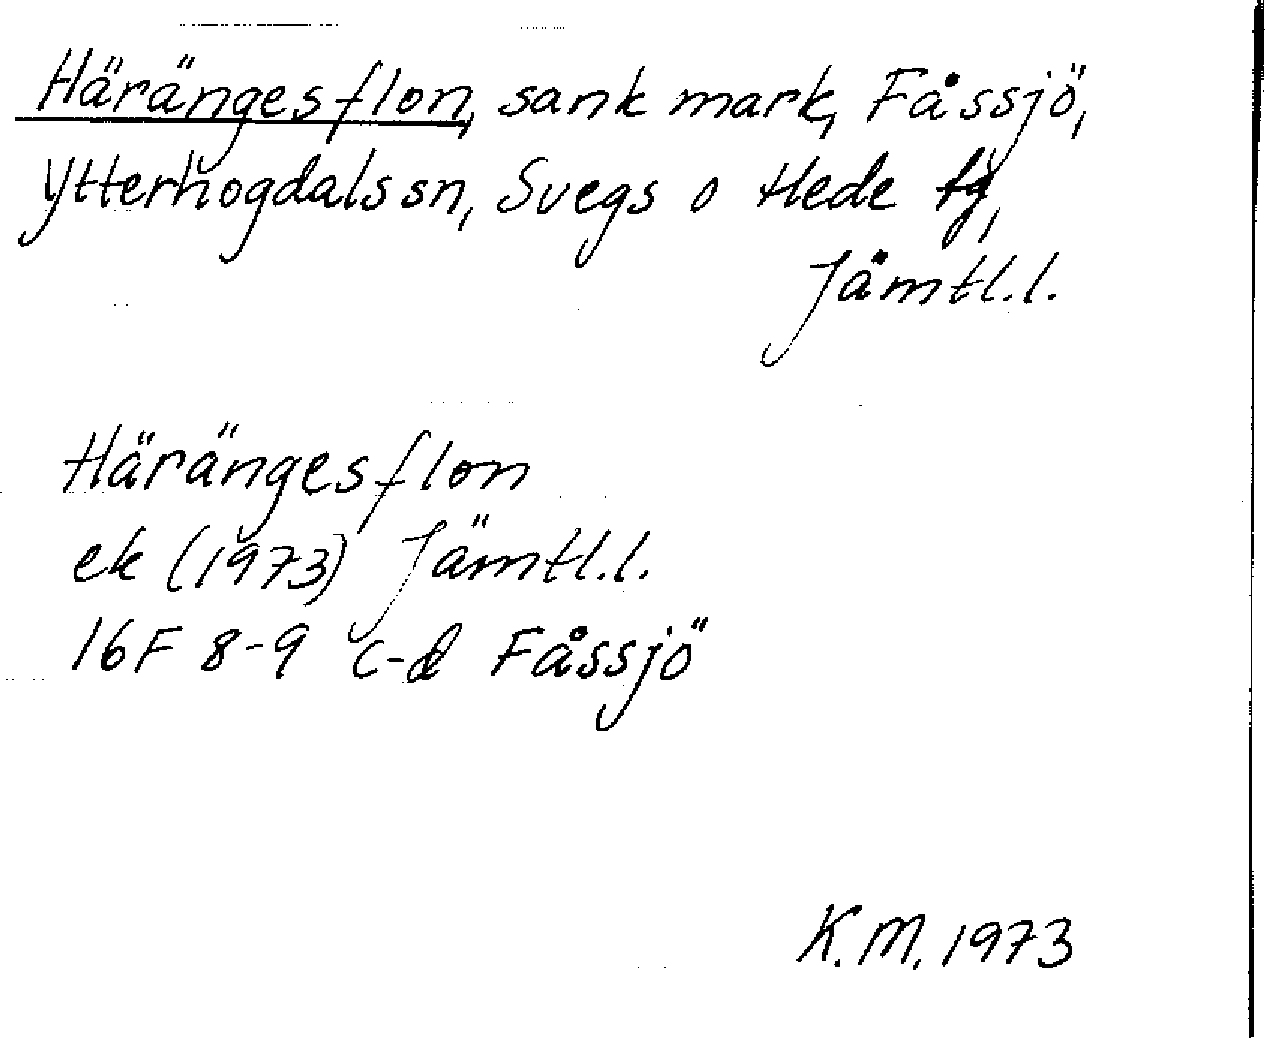 Härängesflon, sank mark, Fåssjö,
Ytterhogdals sn, Svegs o Hede tg,
Jämtl.l.
Härängesflon
ek (1973) Jämtl.l.
16F 8-9 c-d Fåssjö
K.M. 1973